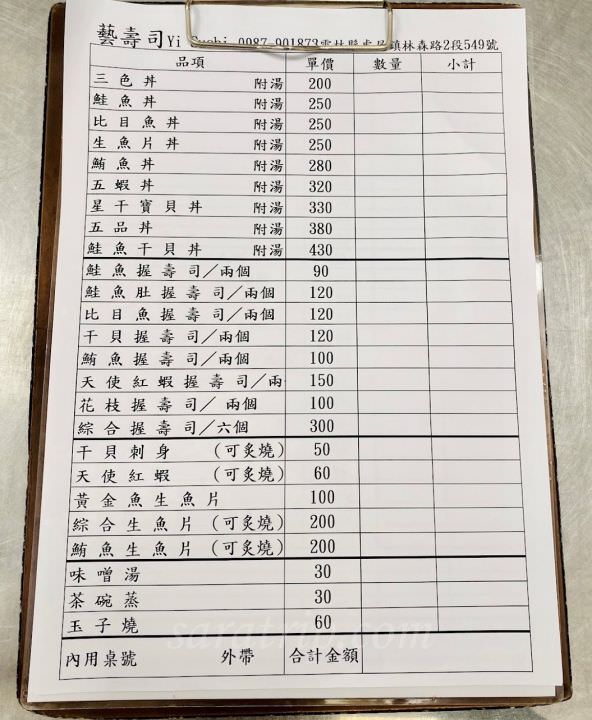 藝壽司Yi Sushi 0987-901873雲林縣虎尾鎮林森路2段549號
品項 單價 數量 小計
三色丼 附湯 200
鮭魚丼 附湯 250
比目魚丼 附湯 250
生魚片丼 附湯 250
鮪魚丼 附湯 280
五蝦丼 附湯 320
星干寶貝丼 附湯 330
五品丼 附湯 380
鮭魚干貝丼 附湯 430
鮭魚握壽司/兩個 90
鮭魚肚握壽司/兩個 120
比目魚握壽司/兩個 120
干貝握壽司/兩個 120
鮪魚握壽司/兩個 100
天使紅蝦握壽司/兩 150
花枝握壽司/兩個 100
綜合握壽司/六個 300
干貝刺身 (可炙燒) 50
天使紅蝦 (可炙燒) 60
黃金魚生魚片 100
綜合生魚片 (可炙燒) 200
鮪魚生魚片 (可炙燒) 200
味噌湯 30
茶碗蒸 30
玉子燒 60
內用桌號 外帶 合計金額